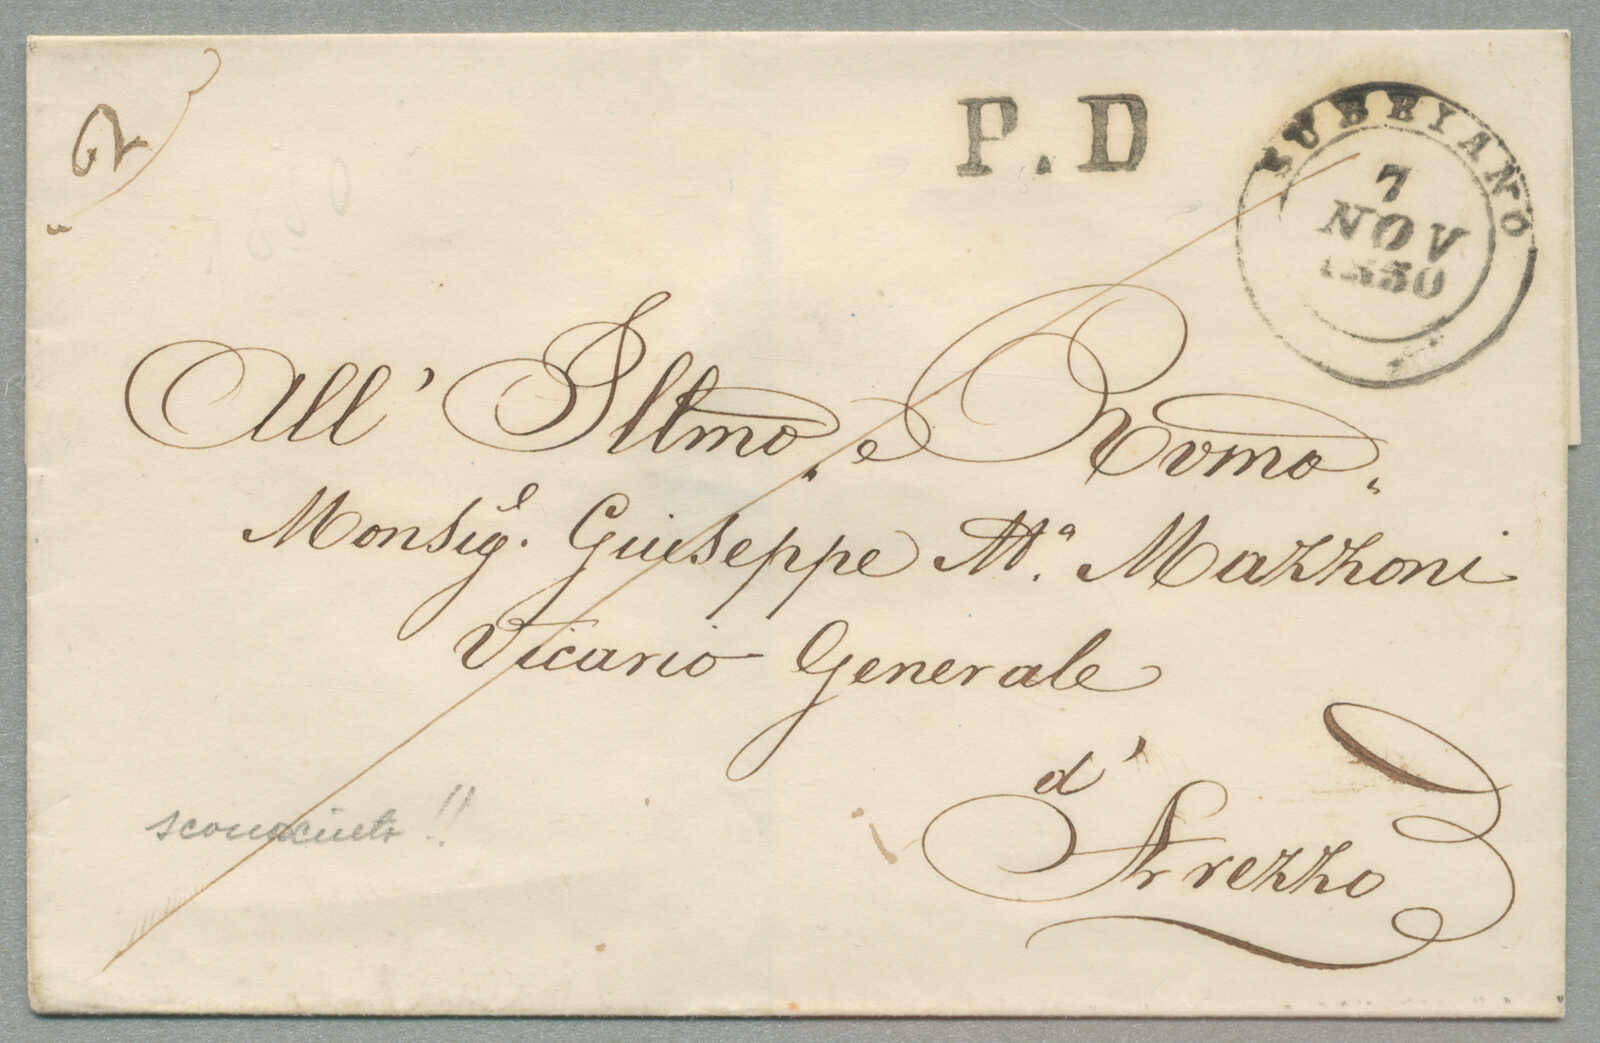 2
P.D
SUBBIANO
7
NOV
1850
All' Illmo. e Rvmo.
Monsig.e Giuseppe M.a Mazzoni
Vicario Generale
d'
Arezzo
sconosciuto!!